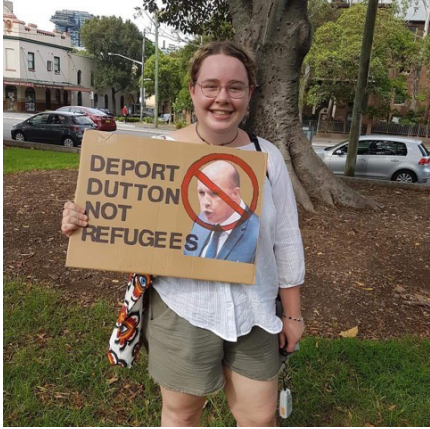 DEPORT
DUTTON
NOT
REFUGEES